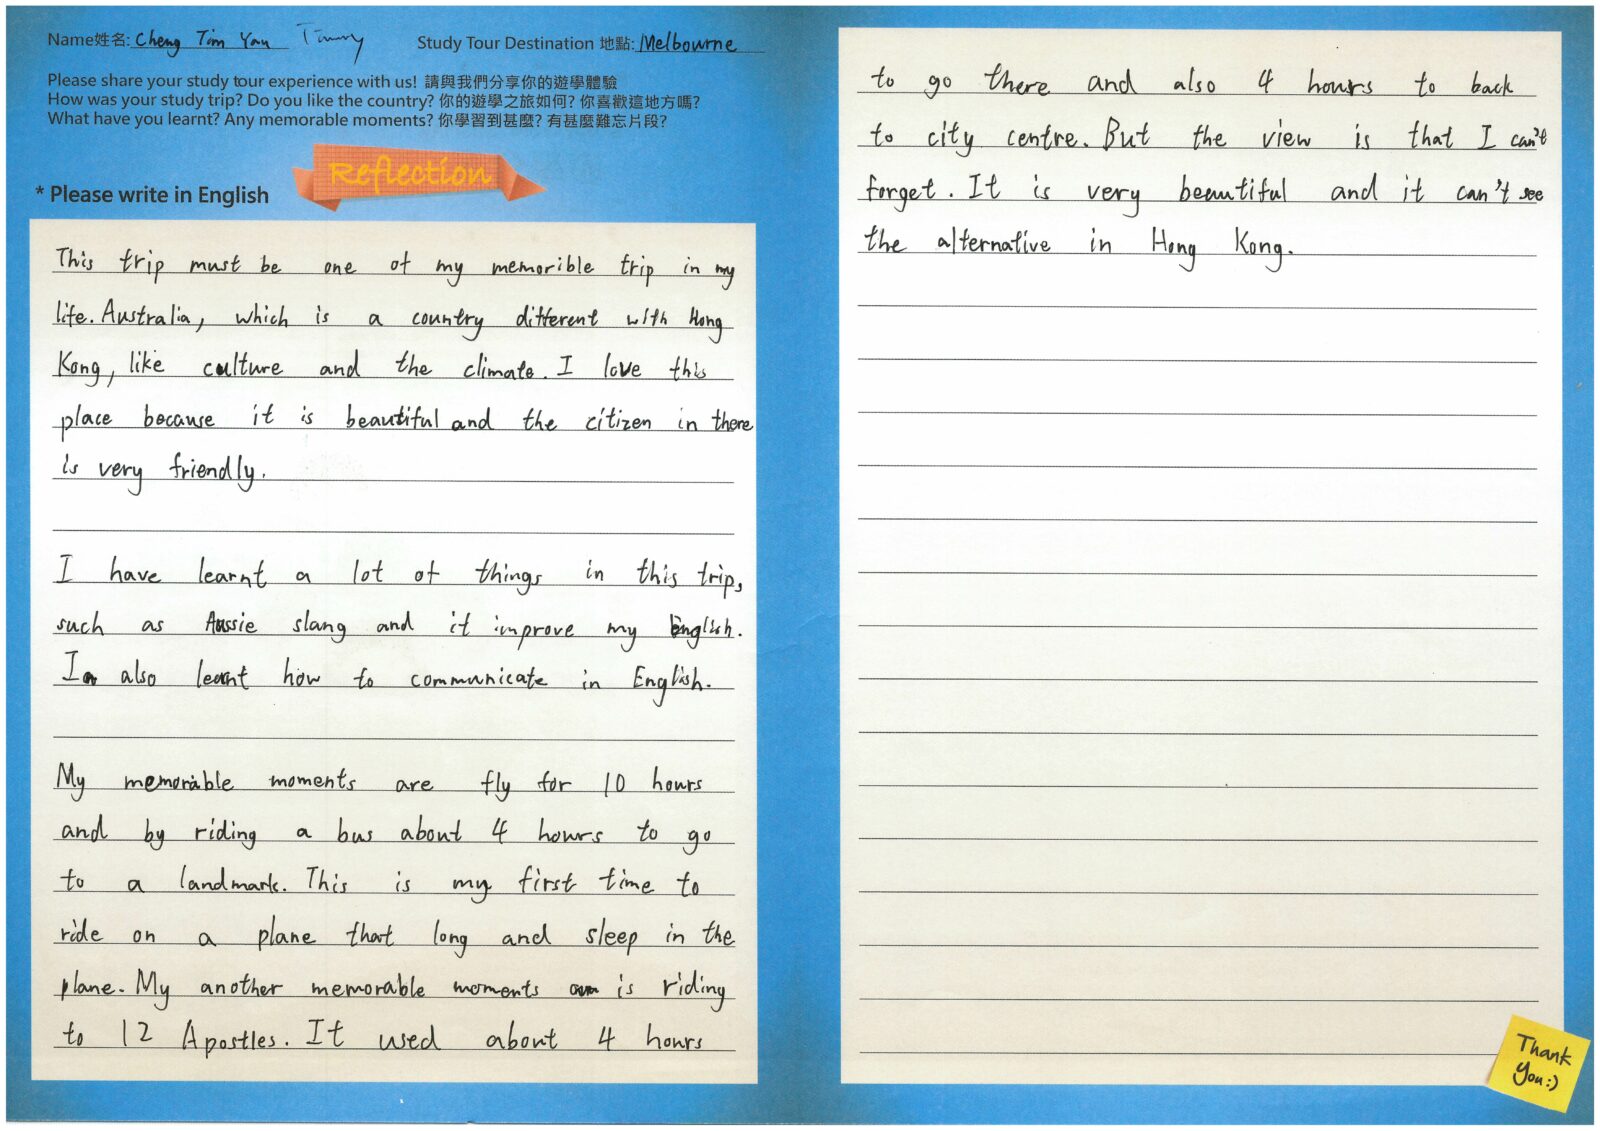 Name姓名: Cheng Tim Yau Timmy Study Tour Destination 地點: Melbourne
Please share your study tour experience with us! 請與我們分享你的遊學體驗
How was your study trip? Do you like the country? 你的遊學之旅如何? 你喜歡這地方嗎?
What have you learnt? Any memorable moments? 你學習到甚麼? 有甚麼難忘片段?
Reflection
* Please write in English
This trip must be one of my memorible trip in my
life. Australia, which is a country different with Hong
Kong, like culture and the climate. I love this
place because it is beautiful and the citizen in there
is very friendly.
I have learnt a lot of things in this trip,
such as Aussie slang and it improve my English.
I also learnt how to communicate in English.
My memorable moments are fly for 10 hours
and by riding a bus about 4 hours to go
to a landmark. This is my first time to
ride on a plane that long and sleep in the
plane. My another memorable moments is riding
to 12 Apostles. It used about 4 hours
to go there and also 4 hours to back
to city centre. But the view is that I can't
forget. It is very beautiful and it can't see
the alternative in Hong Kong.
Thank
You:)